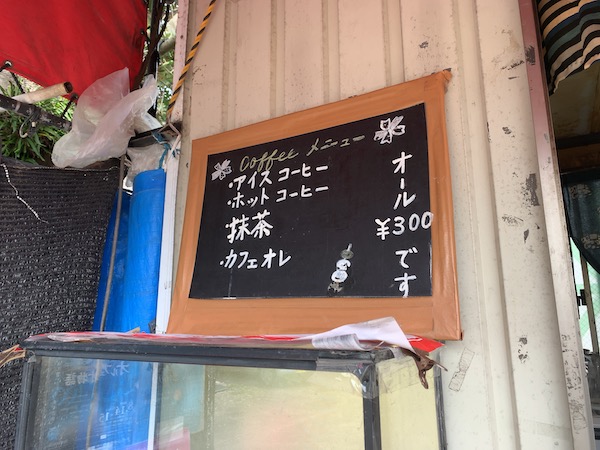 Coffee メニュー
・アイス コーヒー
・ホット コーヒー
・抹茶
・カフェオレ
オール
¥300
です